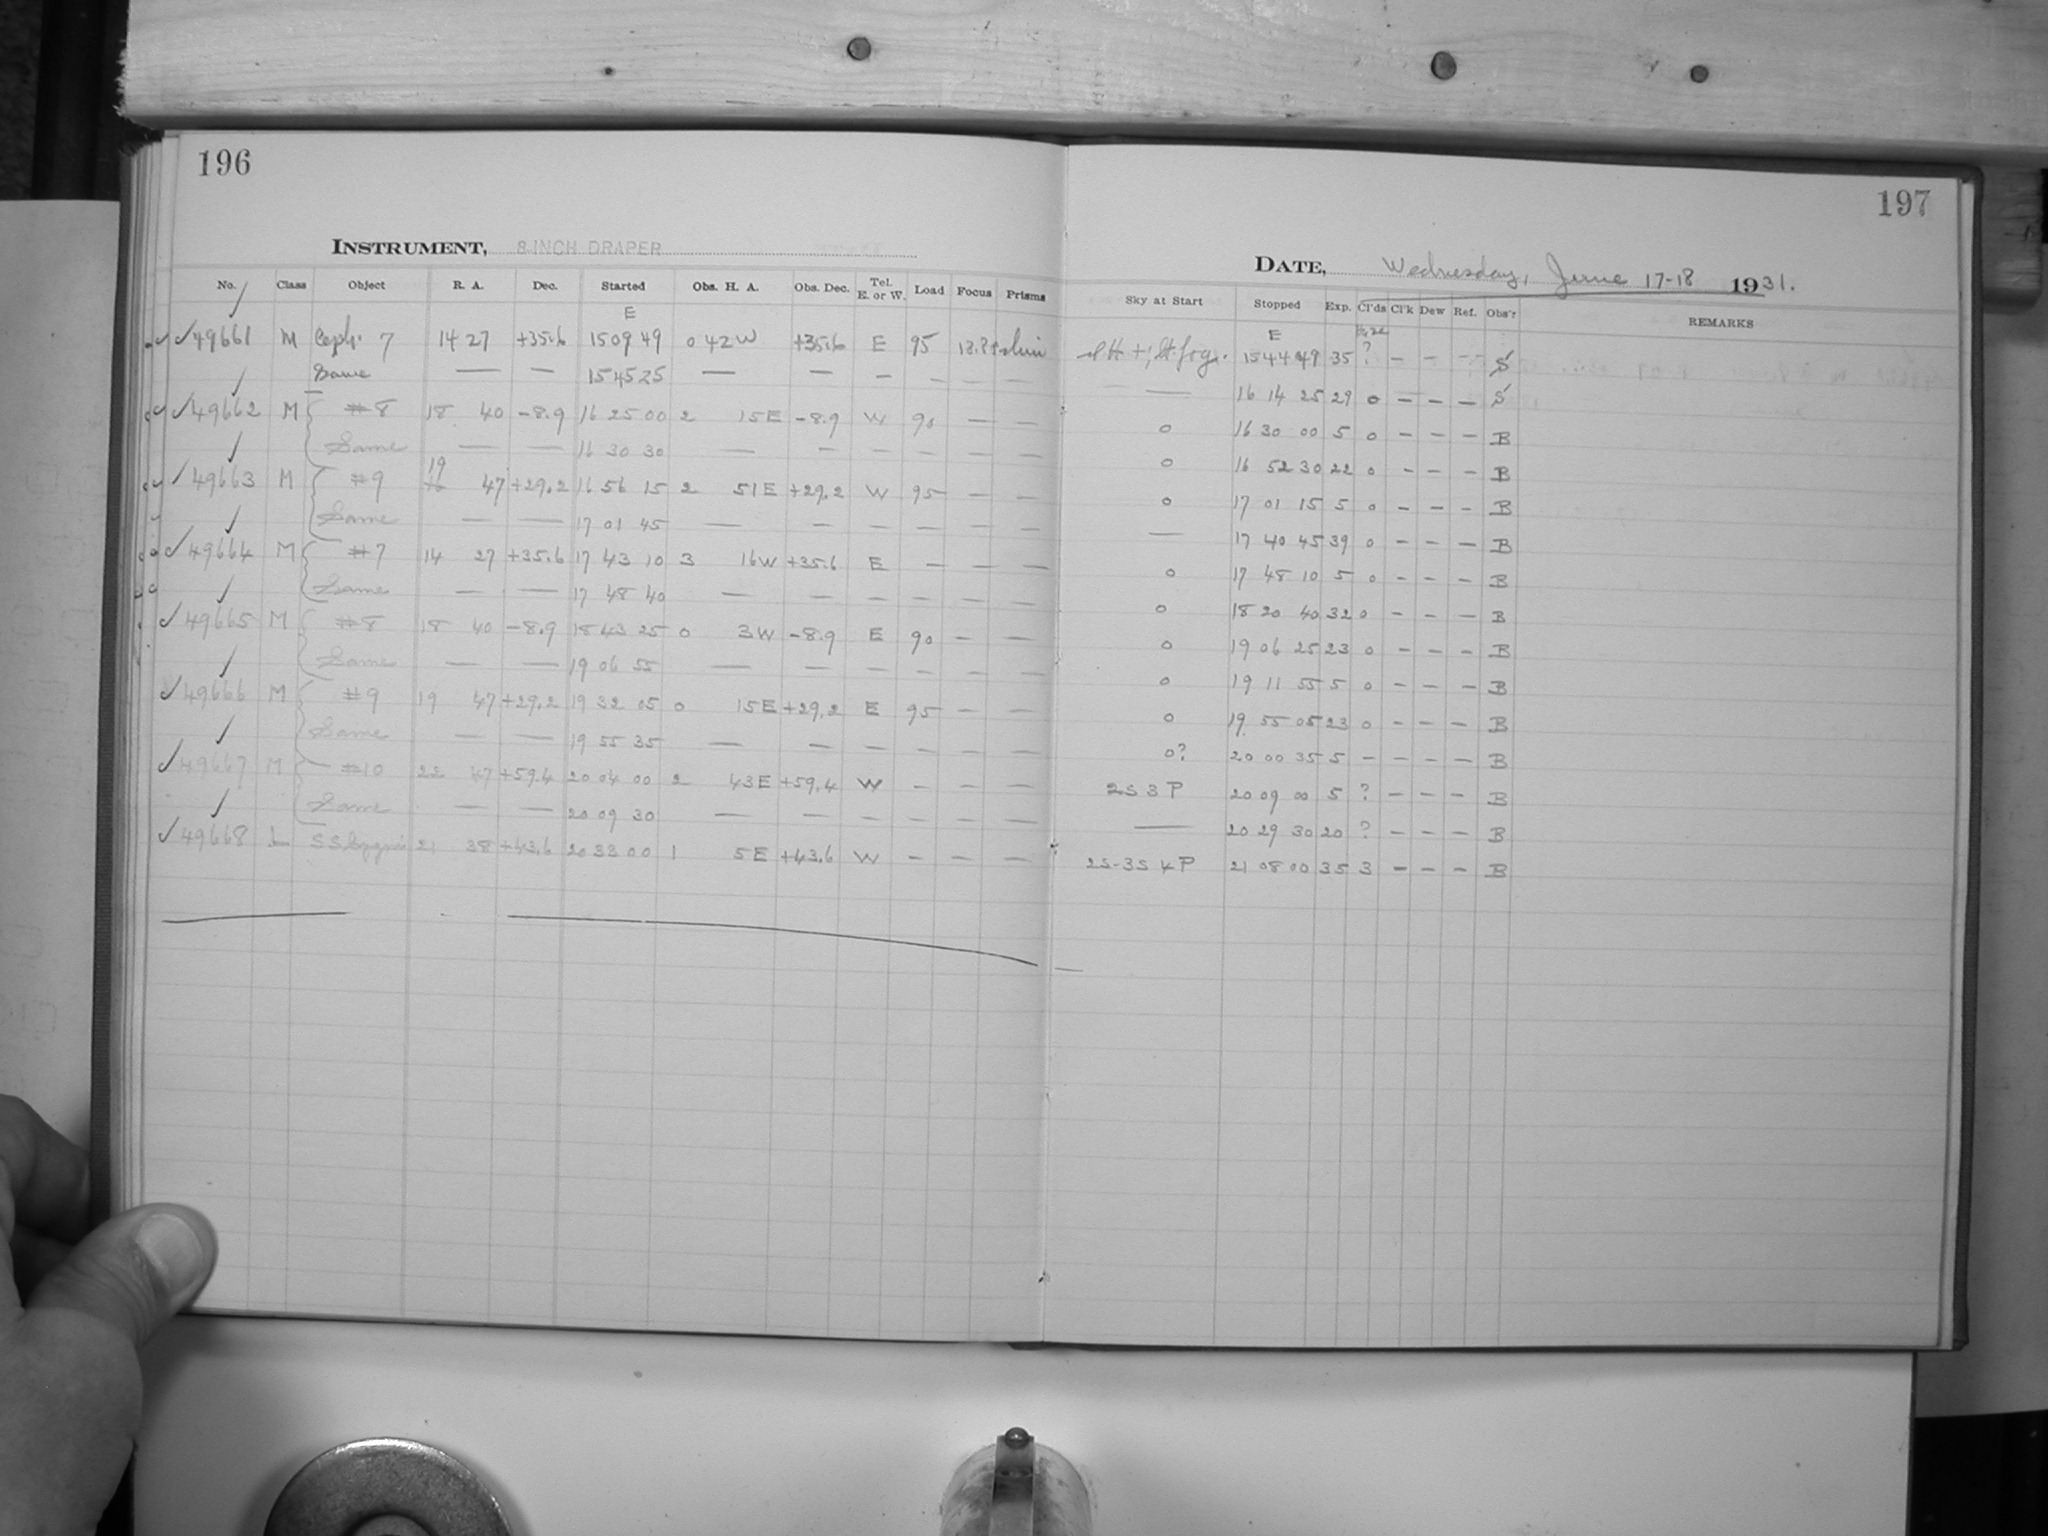 196
INSTRUMENT, 8 INCH DRAPER
No. Class Object R. A. Dec. Started Obs. H. A. Obs. Dec. Tel. E. or W. Load Focus Prisms
E
49661 M Ceph. 7 14 27 +35.6 15 09 49 0 42 W +35.6 E 95
Same — — 15 45 25 — — — — — —
49662 M #8 18 40 -8.9 16 25 00 2 15 E -8.9 W 90 — —
Same — — 16 30 30 — — — — — —
19
49663 M #9 47 +29.2 16 56 15 2 51 E +29.2 W 95 — —
Same — — 17 01 45 — — — — — —
49664 M #7 14 27 +35.6 17 43 10 3 16 W +35.6 E — — —
Same — — 17 48 40 — — — — — —
49665 M #8 18 40 -8.9 18 43 25 0 3 W -8.9 E 90 — —
Same — — 19 06 55 — — — — — —
49666 M #9 19 47 +29.2 19 32 05 0 15 E +29.2 E 95 — —
Same — — 19 55 35 — — — — — —
49667 M #10 22 47 +59.4 20 04 00 2 43 E +59.4 W — — —
Same — — 20 09 30 — — — — — —
49668 L SS Cygni 21 38 +43.6 20 33 00 1 5 E +43.6 W — — —
197
DATE, Wednesday, June 17-18 1931.
Sky at Start Stopped Exp. Cl'ds Cl'k Dew Ref. Obs'r REMARKS
E
15 44 49 35 ? — — — S
— 16 14 25 29 0 — — — S
0 16 30 00 5 0 — — — B
0 16 52 30 22 0 — — — B
0 17 01 15 5 0 — — — B
— 17 40 45 39 0 — — — B
0 17 48 10 5 0 — — — B
0 18 20 40 32 0 — — — B
0 19 06 25 23 0 — — — B
0 19 11 55 5 0 — — — B
0 19 55 05 23 0 — — — B
0? 20 00 35 5 — — — — B
2S 3 P 20 09 00 5 ? — — — B
— 20 29 30 20 ? — — — B
2S-3S 4 P 21 08 00 35 3 — — — B